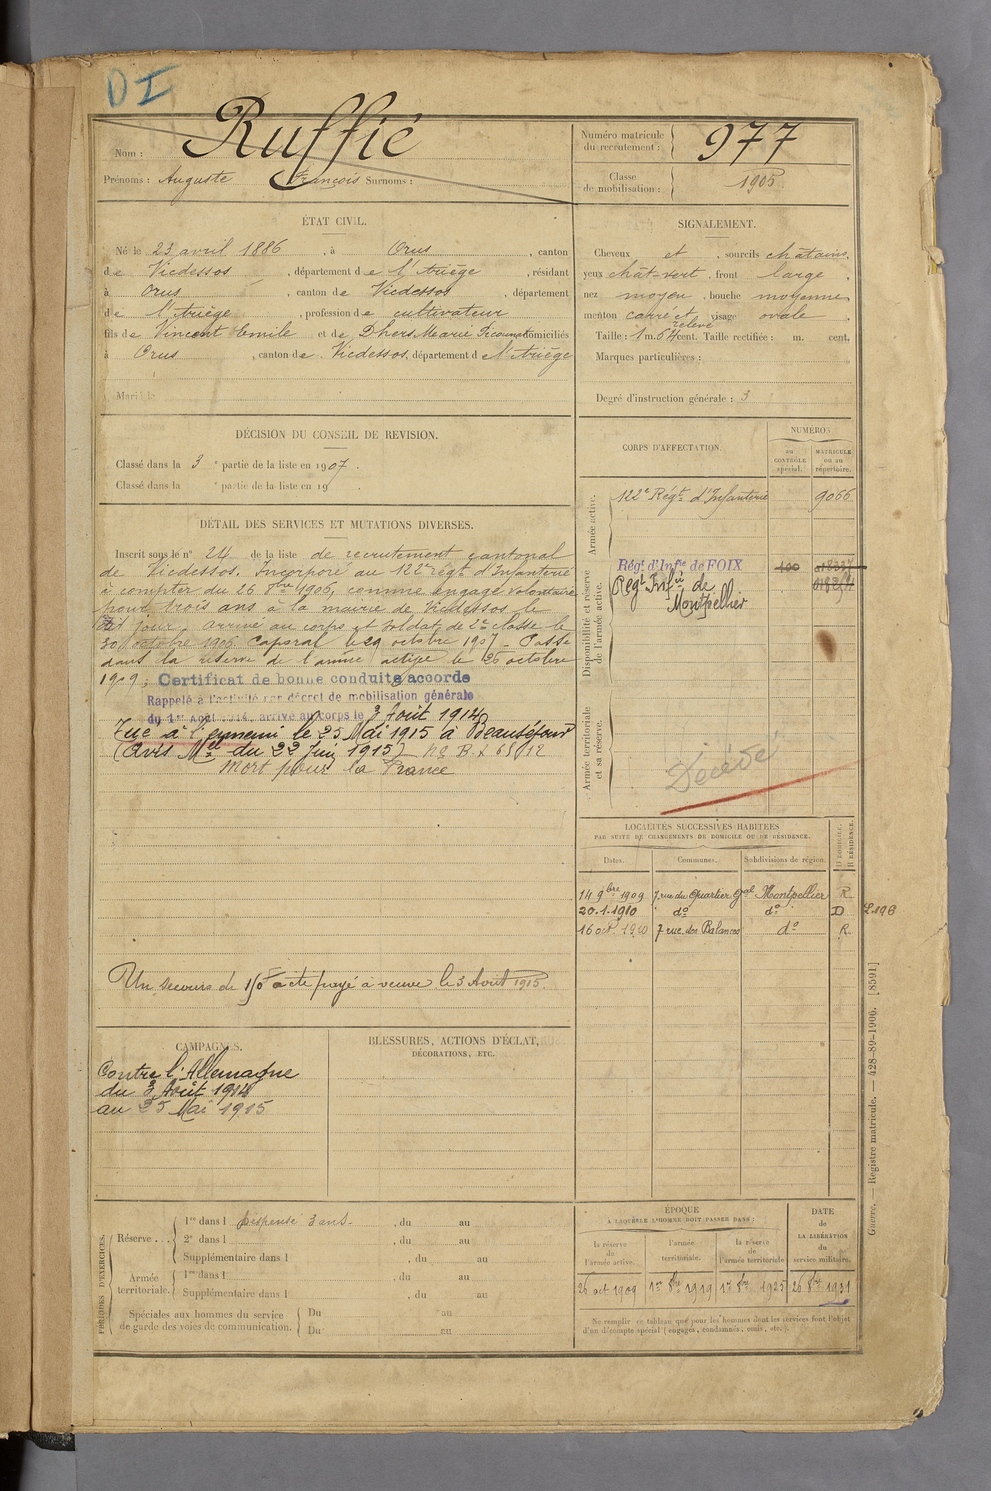 DI
Nom : Ruffié
Prénoms : Auguste François Surnoms :
Numéro matricule du recrutement : 977
Classe de mobilisation : 1905
ÉTAT CIVIL.
Né le 23 avril 1886, à Orus, canton
de Vicdessos, département de l'Ariège, résidant
à Orus, canton de Vicdessos, département
de l'Ariège, profession de cultivateur
fils de Vincent Emile et de Dhers Marie domiciliés
à Orus, canton de Vicdessos, département de l'Ariège
Marié le
SIGNALEMENT.
Cheveux et, sourcils châtains,
yeux chât-vert, front large,
nez moyen, bouche moyenne
menton carré et relevé visage ovale
Taille : 1 m. 64 cent. Taille rectifiée : m. cent.
Marques particulières :
Degré d'instruction générale : 3
DÉCISION DU CONSEIL DE REVISION.
Classé dans la 3e partie de la liste en 1907.
Classé dans la e partie de la liste en 19
DÉTAIL DES SERVICES ET MUTATIONS DIVERSES.
Inscrit sous le n° 24 de la liste de recrutement cantonal
de Vicdessos. Incorporé au 122e régt d'Infanterie
à compter du 26 8bre 1906, comme engagé volontaire
pour trois ans à la mairie de Vicdessos le
dit jour, arrivé au corps et soldat de 2e classe le
30 octobre 1906 Caporal le 29 octobre 1907 - Passé
dans la réserve de l'armée active le 26 octobre
1909; Certificat de bonne conduite accordé
Rappelé à l'activité par décret de mobilisation générale
du 1er Août 1914, arrivé au corps le 3 Août 1914
Tué à l'ennemi le 25 Mai 1915 à Beauséjour
(Avis Mel du 22 Juin 1915) n° B.X 6812
Mort pour la France
Un secours de 150 F acte payé à veuve le 3 Août 1915.
CORPS D'AFFECTATION.
NUMÉROS
au CONTRÔLE spécial.
MATRICULE ou au répertoire.
Armée active.
122e Régt d'Infanterie 9066
Disponibilité et réserve de l'armée active.
Régt d'Infie de FOIX
Régt Infie de
Montpellier
Armée territoriale et sa réserve.
Décédé
LOCALITÉS SUCCESSIVES HABITÉES
PAR SUITE DE CHANGEMENTS DE DOMICILE OU DE RÉSIDENCE.
Dates. Communes. Subdivisions de région. D DOMICILE. R RÉSIDENCE.
14 9bre 1909 7 rue du Quartier Gal Montpellier R
20.1.1910 d° d° D
16 oct 1910 7 rue des Balances d° R
CAMPAGNES.
Contre l'Allemagne
du 3 Août 1914
au 25 Mai 1915
BLESSURES, ACTIONS D'ÉCLAT,
DÉCORATIONS, ETC.
PÉRIODES D'EXERCICES.
Réserve . . .
1re dans l Dispensé 3 ans, du au
2e dans l , du au
Supplémentaire dans l , du au
Armée territoriale.
1re dans l , du au
Supplémentaire dans l , du au
Spéciales aux hommes du service de garde des voies de communication.
Du au
Du au
ÉPOQUE
À LAQUELLE L'HOMME DOIT PASSER DANS :
la réserve de l'armée active.
l'armée territoriale.
la réserve de l'armée territoriale
DATE de LA LIBÉRATION du service militaire.
26 oct 1909 1er 8bre 1919 1er 8bre 1925 26 8bre 1931
Ne remplir ce tableau que pour les hommes dont les services font l'objet
d'un décompte spécial (engagés, condamnés, omis, etc.).
Guerre. — Registre matricule. — 428-89-1906. [8591]